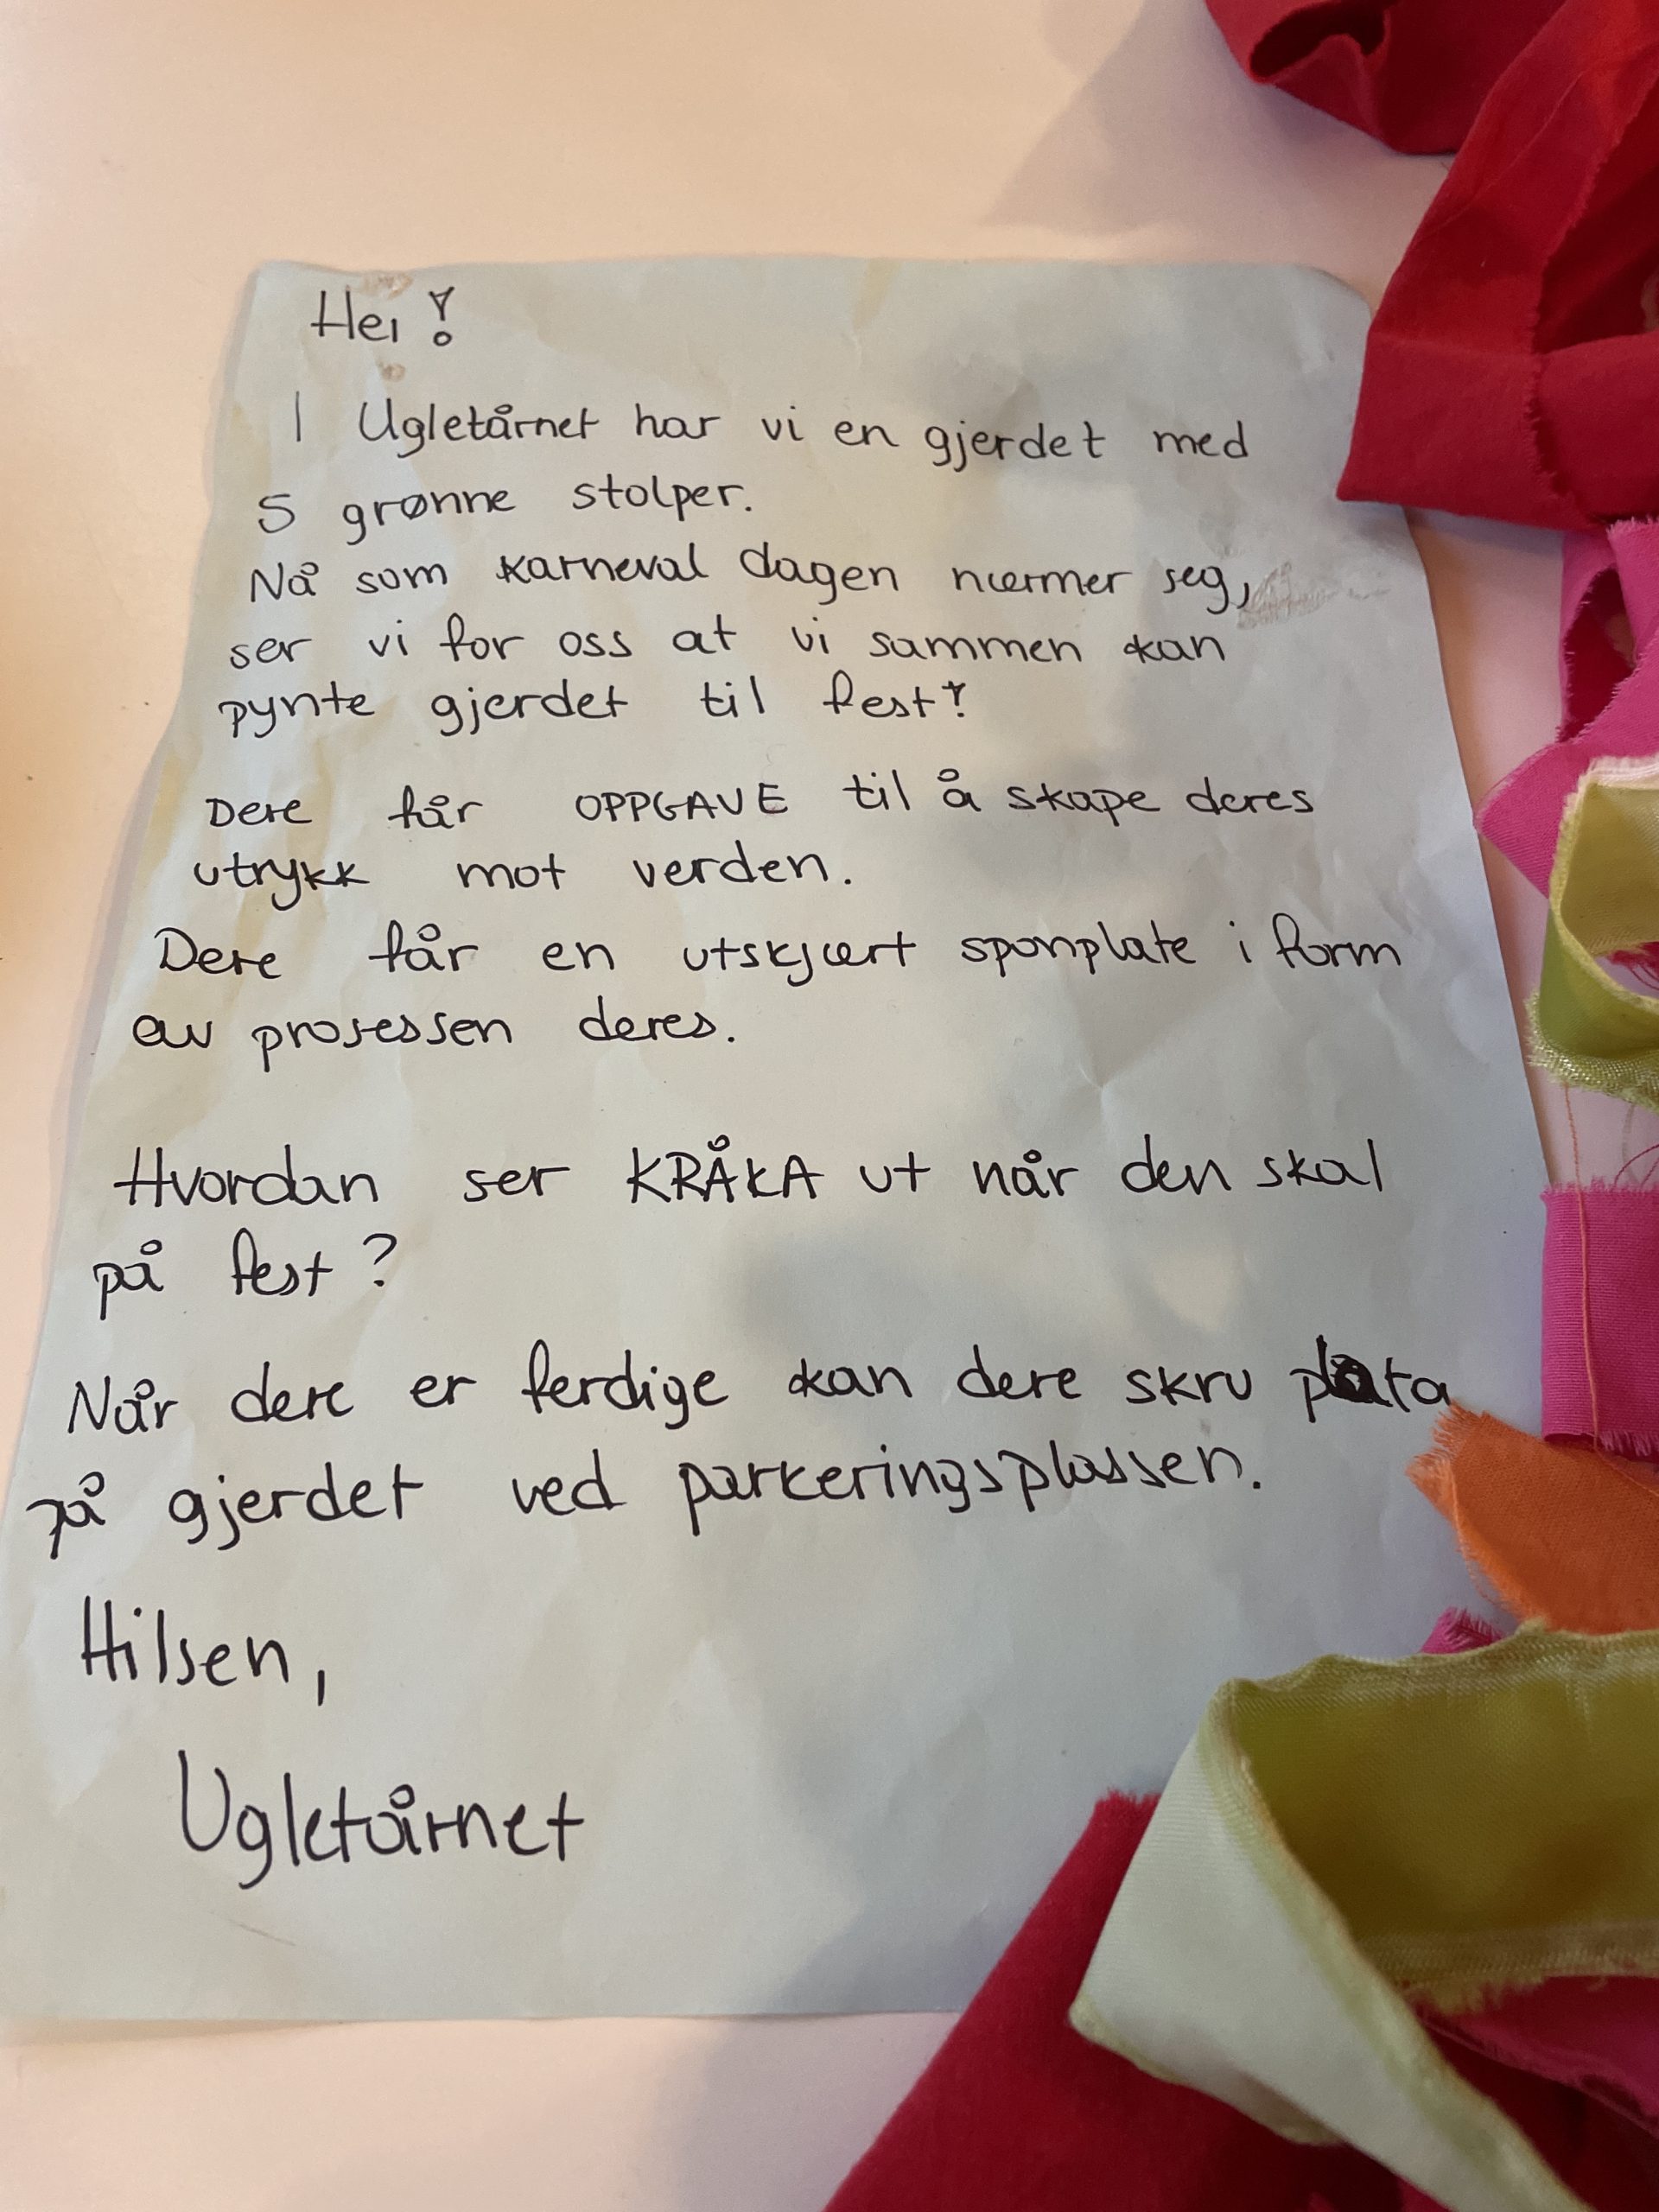 Hei!
I Ugletårnet har vi en gjerdet med
5 grønne stolper.
Nå som karneval dagen nærmer seg,
ser vi for oss at vi sammen kan
pynte gjerdet til fest!
Dere får OPPGAVE til å skape deres
utrykk mot verden.
Dere får en utskjært sponplate i form
av prosessen deres.
Hvordan ser KRÅKA ut når den skal
på fest?
Når dere er ferdige kan dere skru plata
på gjerdet ved parkeringsplassen.
Hilsen,
Ugletårnet